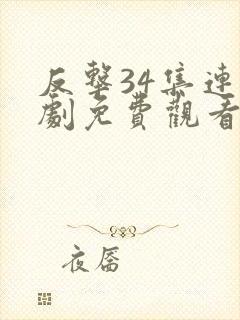 反擊34集連
劇免費觀看
夜厝